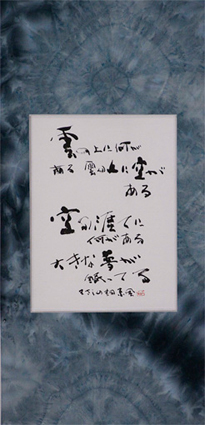 雲の上に何が
ある 雲の上に空が
ある
空の遠くに
何がある
大きな夢が
眠ってる